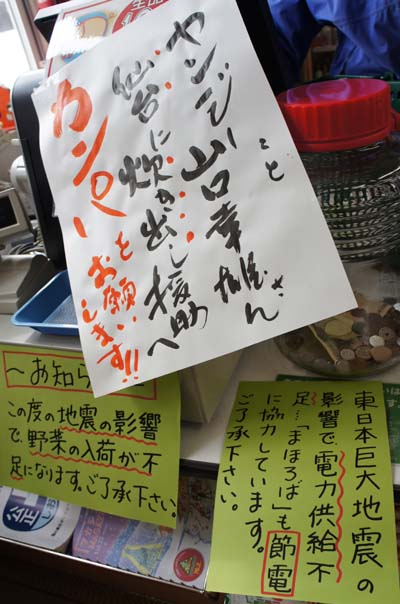 カンジー山口幸雄さん
こと
仙台に炊き出し援助へ
カンパを
お願い
します!!
〜お知ら
この度の地震の影響
で、野菜の入荷が不
足になります。ご了承下さい。
東日本巨大地震の
影響で、電力供給不
足…「まほろば」も節電
に協力しています。
ご了承下さい。
公正